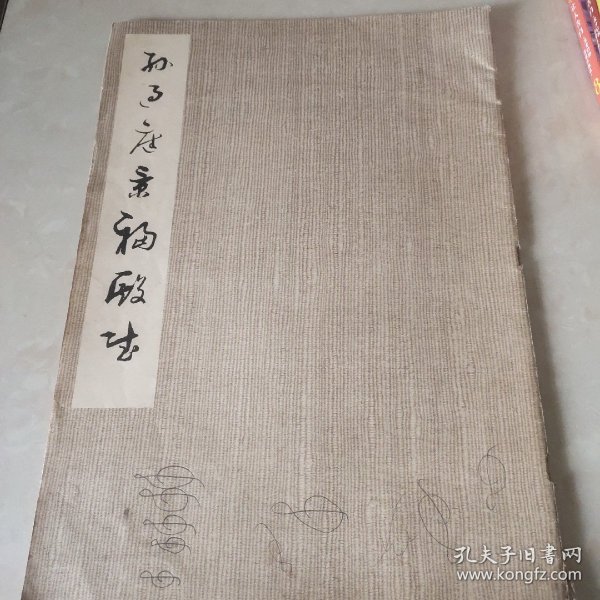 孙过庭景福殿赋
孔夫子旧书网
www.kongfz.com